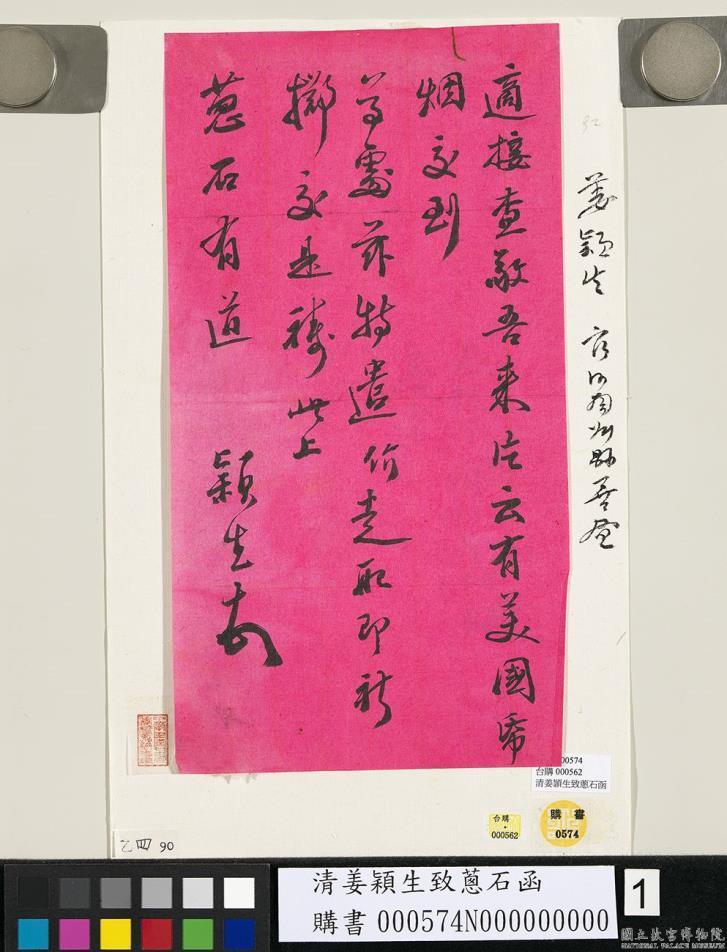 適接查敬吾來片云有美國希
烟交到
尊處茲特遣价走取即祈
擲交是禱此上
蔥石有道
穎生頓
姜穎生
000574
台購 000562
清姜穎生致蔥石函
台購
000562
購書
0574
乙四 90
清姜穎生致蔥石函
購書 000574N000000000
1
國立故宮博物院
NATIONAL PALACE MUSEUM